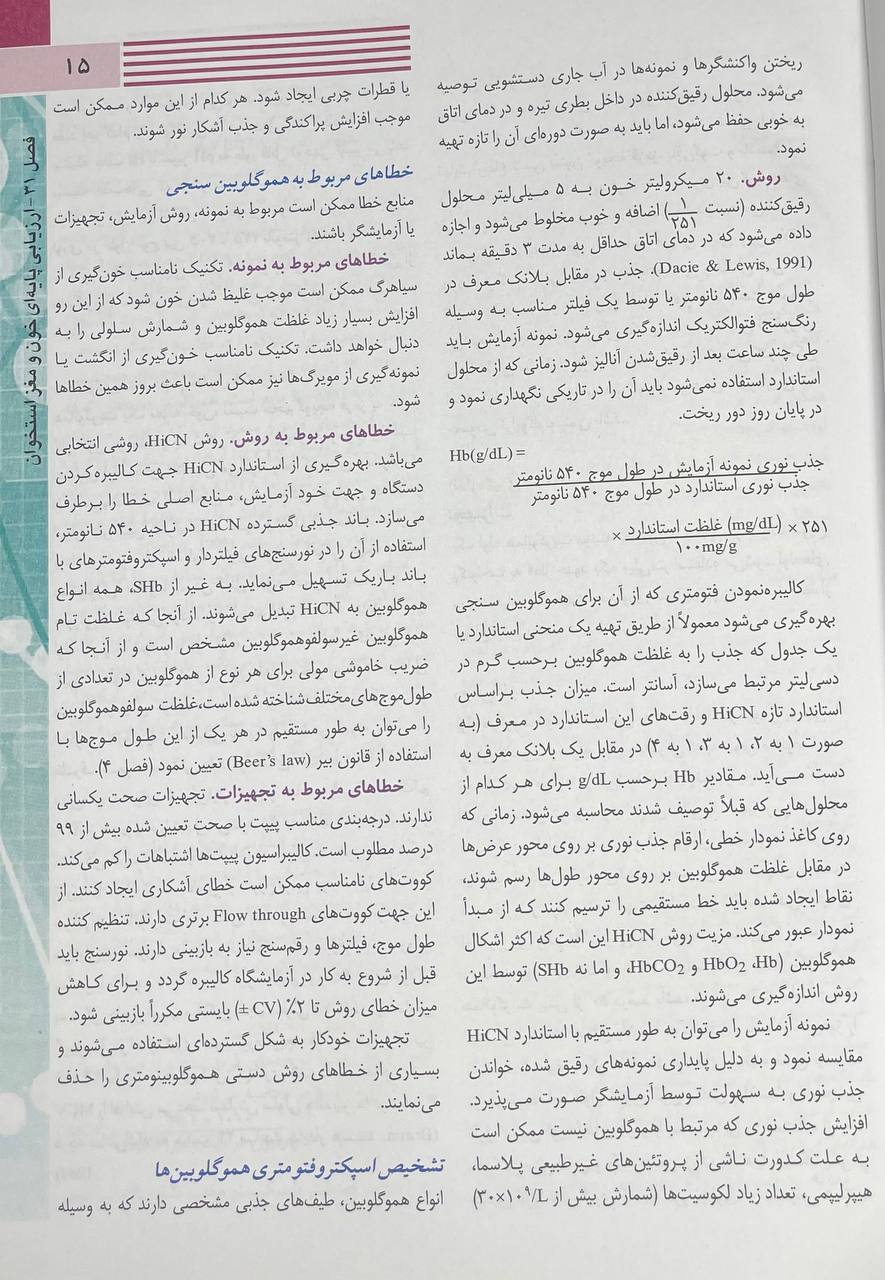 ۱۵
فصل ۳۱ - ارزیابی پایه‌ای خون و مغز استخوان
ریختن واکنشگرها و نمونه‌ها در آب جاری دستشویی توصیه
می‌شود. محلول رقیق‌کننده در داخل بطری تیره و در دمای اتاق
به خوبی حفظ می‌شود، اما باید به صورت دوره‌ای آن را تازه تهیه
نمود.
روش. ۲۰ میکرولیتر خون به ۵ میلی‌لیتر محلول
رقیق‌کننده (نسبت ۱/۲۵۱) اضافه و خوب مخلوط می‌شود و اجازه
داده می‌شود که در دمای اتاق حداقل به مدت ۳ دقیقه بماند
(Dacie & Lewis, 1991). جذب در مقابل بلانک معرف در
طول موج ۵۴۰ نانومتر یا توسط یک فیلتر مناسب به وسیله
رنگ‌سنج فتوالکتریک اندازه‌گیری می‌شود. نمونه آزمایش باید
طی چند ساعت بعد از رقیق‌شدن آنالیز شود. زمانی که از محلول
استاندارد استفاده نمی‌شود باید آن را در تاریکی نگهداری نمود و
در پایان روز دور ریخت.
Hb(g/dL) =
جذب نوری نمونه آزمایش در طول موج ۵۴۰ نانومتر
جذب نوری استاندارد در طول موج ۵۴۰ نانومتر
× غلظت استاندارد (mg/dL) × ۲۵۱
۱۰۰mg/g
کالیبره‌نمودن فتومتری که از آن برای هموگلوبین سنجی
بهره‌گیری می‌شود معمولاً از طریق تهیه یک منحنی استاندارد یا
یک جدول که جذب را به غلظت هموگلوبین برحسب گرم در
دسی‌لیتر مرتبط می‌سازد، آسانتر است. میزان جذب براساس
استاندارد تازه HiCN و رقت‌های این استاندارد در معرف (به
صورت ۱ به ۲، ۱ به ۳، ۱ به ۴) در مقابل یک بلانک معرف به
دست می‌آید. مقادیر Hb برحسب g/dL برای هر کدام از
محلول‌هایی که قبلاً توصیف شدند محاسبه می‌شود. زمانی که
روی کاغذ نمودار خطی، ارقام جذب نوری بر روی محور عرض‌ها
در مقابل غلظت هموگلوبین بر روی محور طول‌ها رسم شوند،
نقاط ایجاد شده باید خط مستقیمی را ترسیم کنند که از مبدأ
نمودار عبور می‌کند. مزیت روش HiCN این است که اکثر اشکال
هموگلوبین (Hb، HbO2 و HbCO2، و اما نه SHb) توسط این
روش اندازه‌گیری می‌شوند.
نمونه آزمایش را می‌توان به طور مستقیم با استاندارد HiCN
مقایسه نمود و به دلیل پایداری نمونه‌های رقیق شده، خواندن
جذب نوری به سهولت توسط آزمایشگر صورت می‌پذیرد.
افزایش جذب نوری که مرتبط با هموگلوبین نیست ممکن است
به علت کدورت ناشی از پروتئین‌های غیرطبیعی پلاسما،
هیپرلیپمی، تعداد زیاد لکوسیت‌ها (شمارش بیش از ۳۰×۱۰⁹/L)
یا قطرات چربی ایجاد شود. هر کدام از این موارد ممکن است
موجب افزایش پراکندگی و جذب آشکار نور شوند.
خطاهای مربوط به هموگلوبین سنجی
منابع خطا ممکن است مربوط به نمونه، روش آزمایش، تجهیزات
یا آزمایشگر باشند.
خطاهای مربوط به نمونه. تکنیک نامناسب خون‌گیری از
سیاهرگ ممکن است موجب غلیظ شدن خون شود که از این رو
افزایش بسیار زیاد غلظت هموگلوبین و شمارش سلولی را به
دنبال خواهد داشت. تکنیک نامناسب خون‌گیری از انگشت یا
نمونه‌گیری از مویرگ‌ها نیز ممکن است باعث بروز همین خطاها
شود.
خطاهای مربوط به روش. روش HiCN، روشی انتخابی
می‌باشد. بهره‌گیری از استاندارد HiCN جهت کالیبره‌کردن
دستگاه و جهت خود آزمایش، منابع اصلی خطا را برطرف
می‌سازد. باند جذبی گسترده HiCN در ناحیه ۵۴۰ نانومتر،
استفاده از آن را در نورسنج‌های فیلتردار و اسپکتروفتومترهای با
باند باریک تسهیل می‌نماید. به غیر از SHb، همه انواع
هموگلوبین به HiCN تبدیل می‌شوند. از آنجا که غلظت تام
هموگلوبین غیرسولفوهموگلوبین مشخص است و از آنجا که
ضریب خاموشی مولی برای هر نوع از هموگلوبین در تعدادی از
طول‌موج‌های مختلف شناخته شده است، غلظت سولفوهموگلوبین
را می‌توان به طور مستقیم در هر یک از این طول موج‌ها با
استفاده از قانون بیر (Beer's law) تعیین نمود (فصل ۴).
خطاهای مربوط به تجهیزات. تجهیزات صحت یکسانی
ندارند. درجه‌بندی مناسب پیپت با صحت تعیین شده بیش از ۹۹
درصد مطلوب است. کالیبراسیون پیپت‌ها اشتباهات را کم می‌کند.
کووت‌های نامناسب ممکن است خطای آشکاری ایجاد کنند. از
این جهت کووت‌های Flow through برتری دارند. تنظیم کننده
طول موج، فیلترها و رقم‌سنج نیاز به بازبینی دارند. نورسنج باید
قبل از شروع به کار در آزمایشگاه کالیبره گردد و برای کاهش
میزان خطای روش تا ۲٪ (CV ±) بایستی مکرراً بازبینی شود.
تجهیزات خودکار به شکل گسترده‌ای استفاده می‌شوند و
بسیاری از خطاهای روش دستی هموگلوبینومتری را حذف
می‌نمایند.
تشخیص اسپکتروفتومتری هموگلوبین‌ها
انواع هموگلوبین، طیف‌های جذبی مشخصی دارند که به وسیله